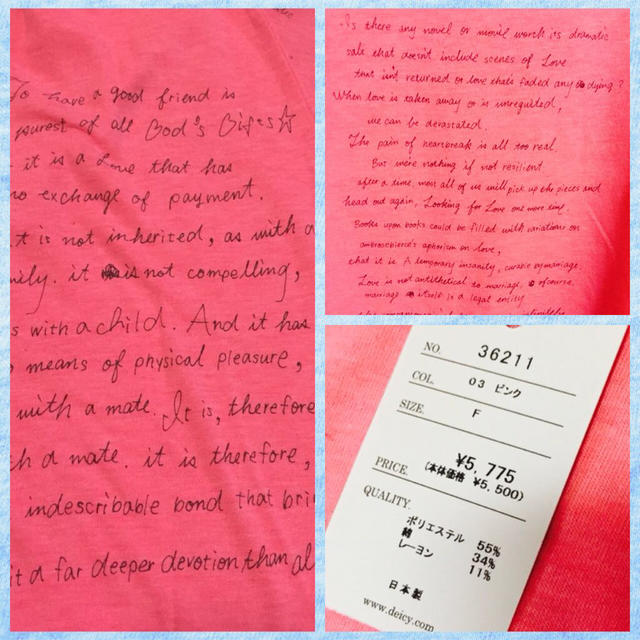 To have a good friend is
purest of all God's Gifts☆
it is a Love that has
no exchange of payment.
it is not inherited, as with a
mily. it is not compelling,
s with a child. And it has
means of physical pleasure,
with a mate. It is, therefore
h a mate. it is therefore,
indescribable bond that bri
it a far deeper devotion than al
Is there any novel or movie worth its dramatic
salt that doesn't include scenes of Love
that isn't returned or love that's faded any dying?
When love is taken away or is unrequited,
we can be devastated.
The pain of heartbreak is all too real.
But we're nothing if not resilient
after a time, most all of us will pick up the pieces and
head out again, Looking for Love one more time.
Books upon books could be filled with variations on
ambrosebierce's aphorism on love,
that it is A temporary insanity, curable by marriage.
Love is not antithetical to marriage, ofcourse.
marriage itself is a legal entity
NO. 36211
COL. 03 ピンク
SIZE. F
PRICE. ¥5,775
(本体価格 ¥5,500)
QUALITY.
ポリエステル 55%
綿 34%
レーヨン 11%
日本製
www.deicy.com